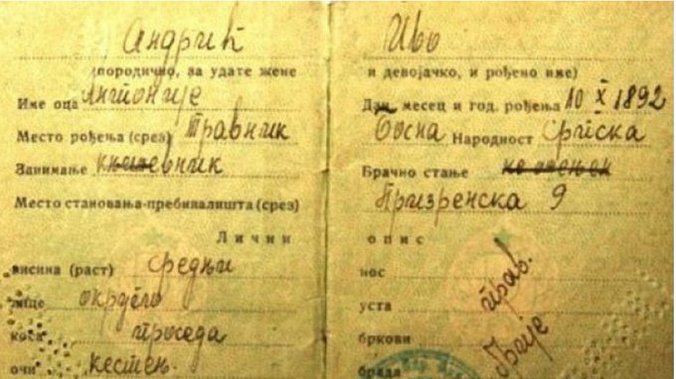 Андрић Иво
(породично, за удате жене и девојачко, и рођено име)
Име оца Антоније Дан, месец и год. рођења 10 X 1892
Место рођења (срез) Травник Босна Народност Српска
Занимање књижевник Брачно стање не ожењен
Место становања-пребивалишта (срез) Призренска 9
Лични опис
висина (раст) средњи нос прав.
лице округло уста
коса проседа бркови брије
очи кестењ. брада